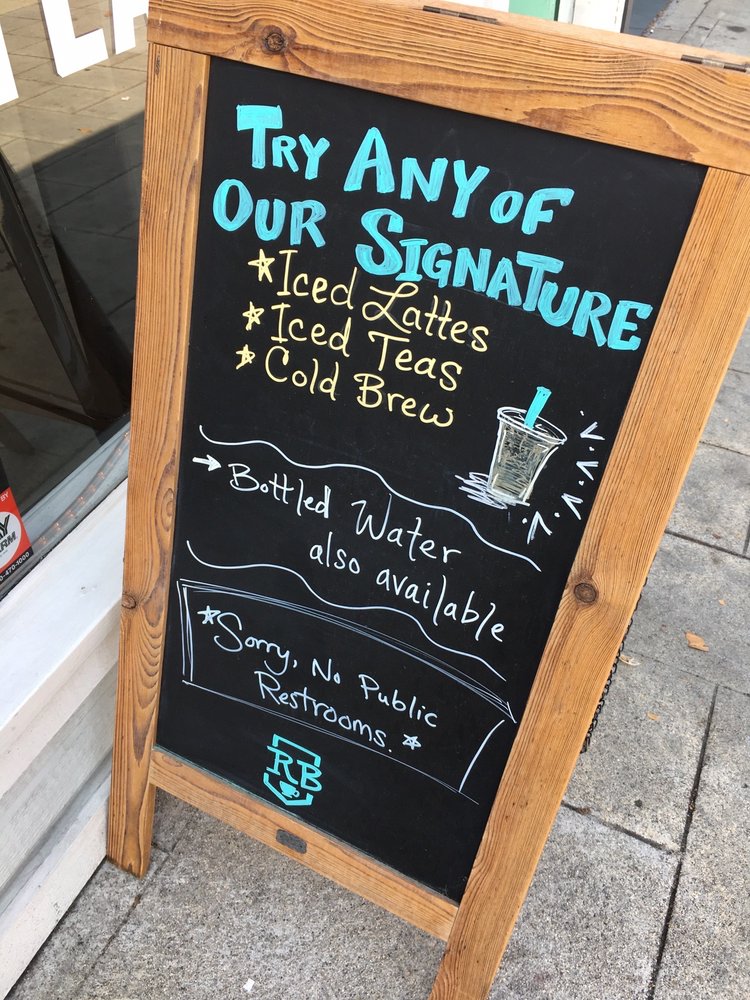 TRY ANY OF
OUR SIGNATURE
Iced Lattes
Iced Teas
Cold Brew
Bottled Water
also available
*Sorry, No Public
Restrooms.*
RB
BY